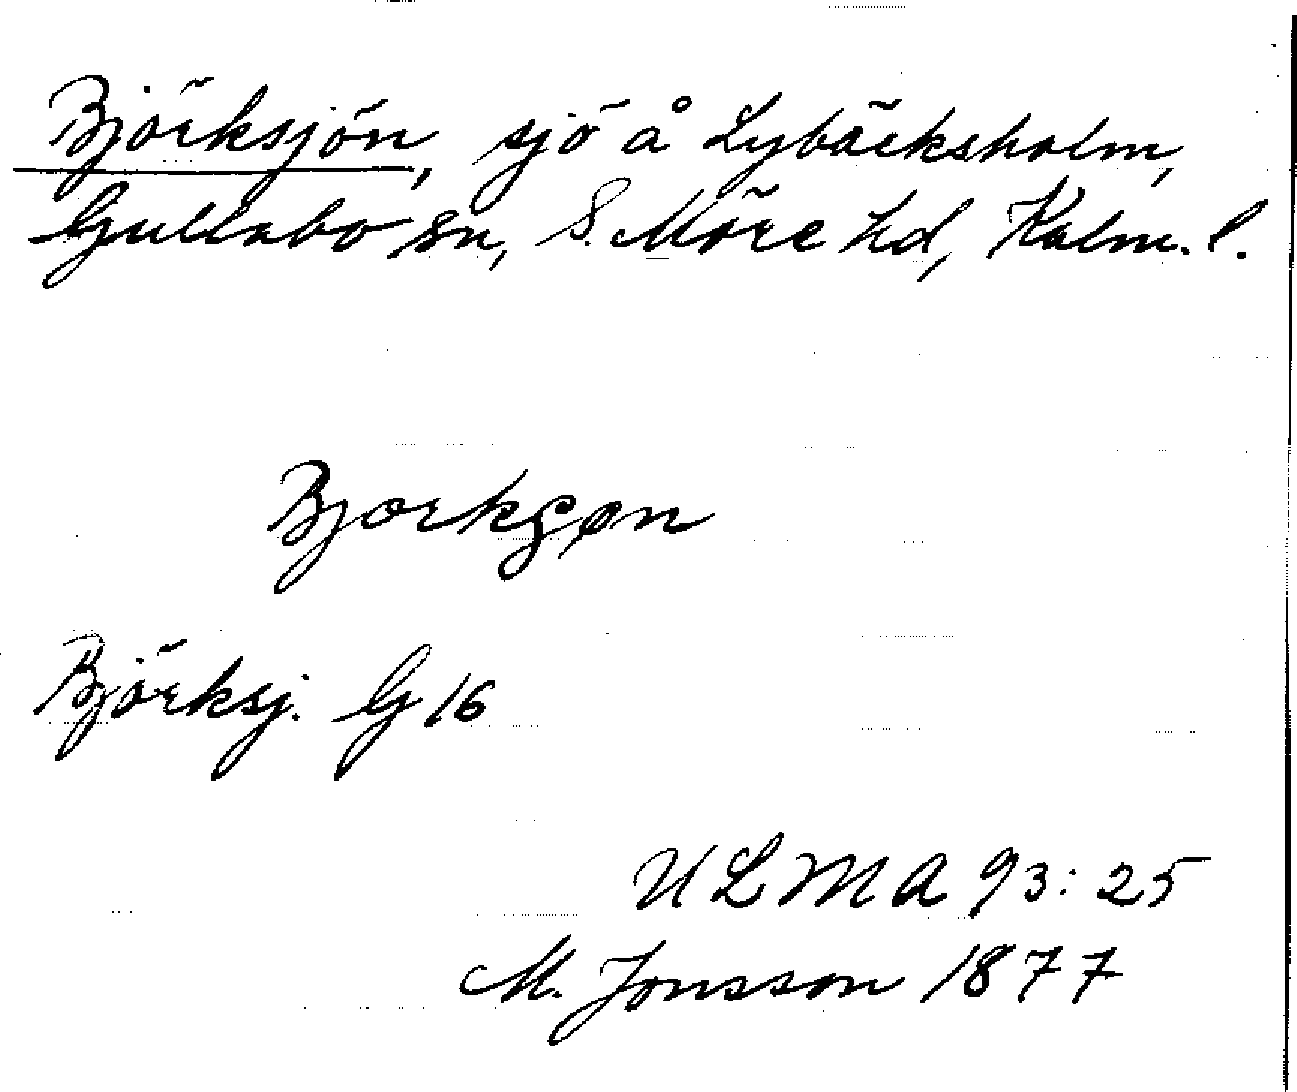 Björksjön, sjö å Lybäcksholm,
Gullabo sn, S. Möre hd, Kalm. l.
Björksj. G 16
ULMA 93:25
M. Jonsson 1877